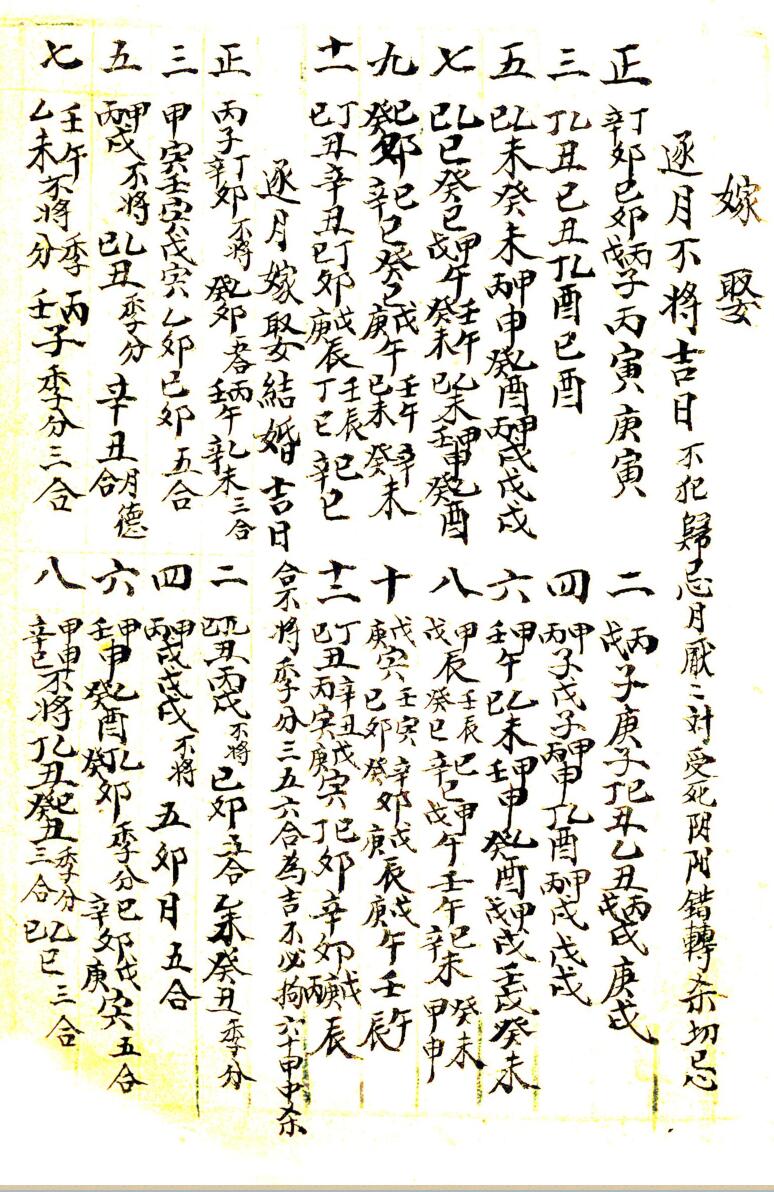 嫁娶
逐月不将吉日 不犯歸忌月厭二対受死阴阳错轉杀切忌
正 丁辛卯己卯丙戊子丙寅庚寅
二 丙戊子庚子丁己丑乙丑丙戊戌庚戌
三 丁乙丑己丑丁乙酉己酉
四 甲丙子戊子甲丙申丁乙酉甲丙戌戊戌
五 乙己未癸未甲丙申乙癸酉甲丙戌戊戌
六 甲壬午乙未甲壬申乙癸酉甲戊戌壬戌癸未
七 乙己巳癸巳甲戊午壬午癸未乙己未甲壬申乙癸酉
八 甲戊辰壬辰癸巳辛巳甲戊午壬午己辛未癸未甲申
九 己癸卯辛巳己巳癸巳戊庚午壬午己未辛癸未
十 戊庚寅壬寅己卯辛卯癸卯戊庚辰戊庚午壬辰午
十一 丁己丑辛丑丁己卯戊庚辰壬辰丁巳己辛巳
十二 丁己丑辛丑丙寅戊庚寅丁己卯辛卯丙戊庚辰
逐月嫁娶結婚吉日 合不将季分三五六合為吉不必拘六十甲中杀
正 丙子丁辛卯不将乙癸卯五合丙壬午乙辛未三合
二 乙己丑丙戌不将己卯五合乙未癸丑季分
三 甲寅壬寅戊寅乙卯己卯五合
四 甲丙戌戊戌不将五卯日五合
五 甲丙戌不将乙己丑季分辛丑月德合
六 甲壬申乙癸酉不将乙丁癸卯季分己辛卯戊庚寅五合
七 壬午乙未不将季分丙壬子季分三合
八 甲申辛巳不将丁乙丑己癸丑季分三合乙己巳三合